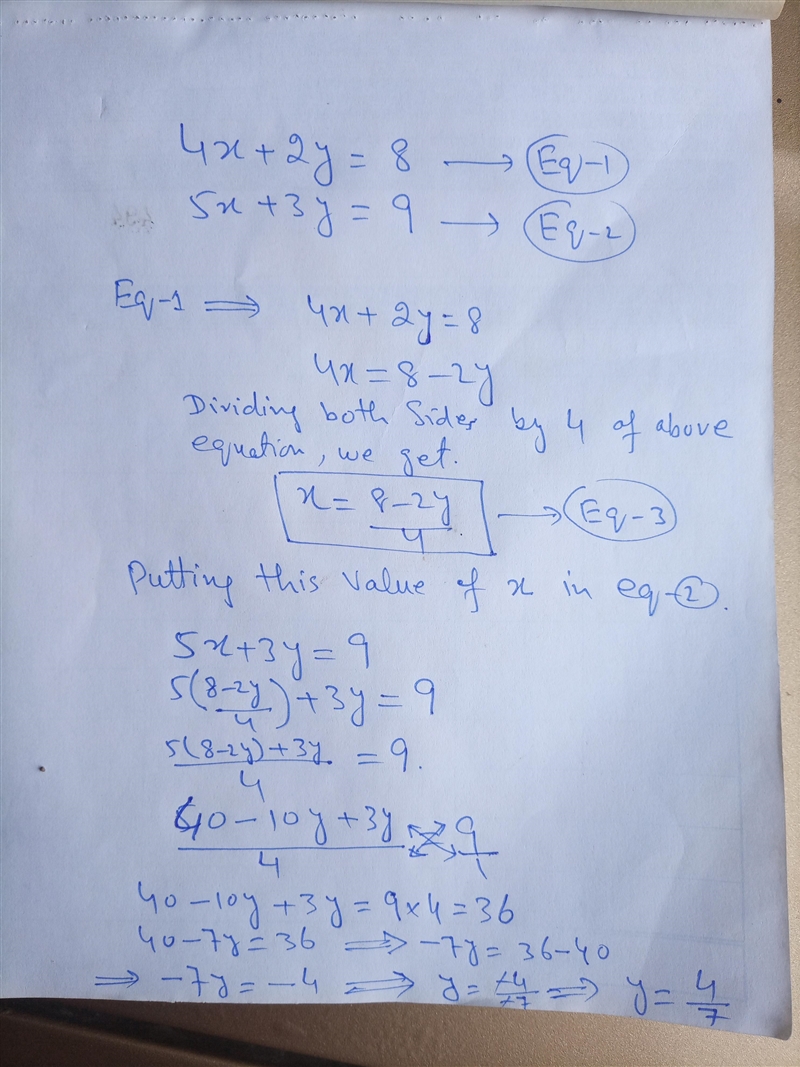 4x + 2y = 8 → Eq-1
5x + 3y = 9 → Eq-2
Eq-1 ⇒ 4x + 2y = 8
4x = 8 - 2y
Dividing both Sides by 4 of above
equation, we get.
x = 8-2y/4 → Eq-3
Putting this value of x in eq-2.
5x + 3y = 9
5(8-2y/4) + 3y = 9
5(8-2y)+3y/4 = 9.
40 - 10y + 3y/4 9/1
40 - 10y + 3y = 9 × 4 = 36
40 - 7y = 36 ⇒ -7y = 36 - 40
⇒ -7y = -4 ⇒ y = -4/-7 ⇒ y = 4/7